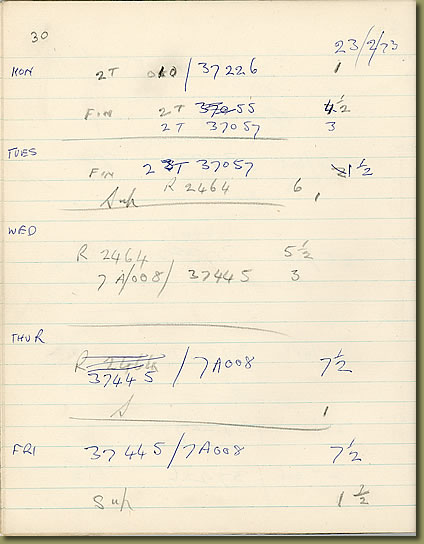 30
23/2/73
MON 2T 010/37226 1
FIN 2T 37055 4½
2T 37057 3
TUES
FIN 2T 37057 1½
R 2464 6
Sup 1
WED
R 2464 5½
7A/008/ 37445 3
THUR
R 2464 / 7A008 7½
37445
S 1
FRI 37445/7A008 7½
Sup 1½